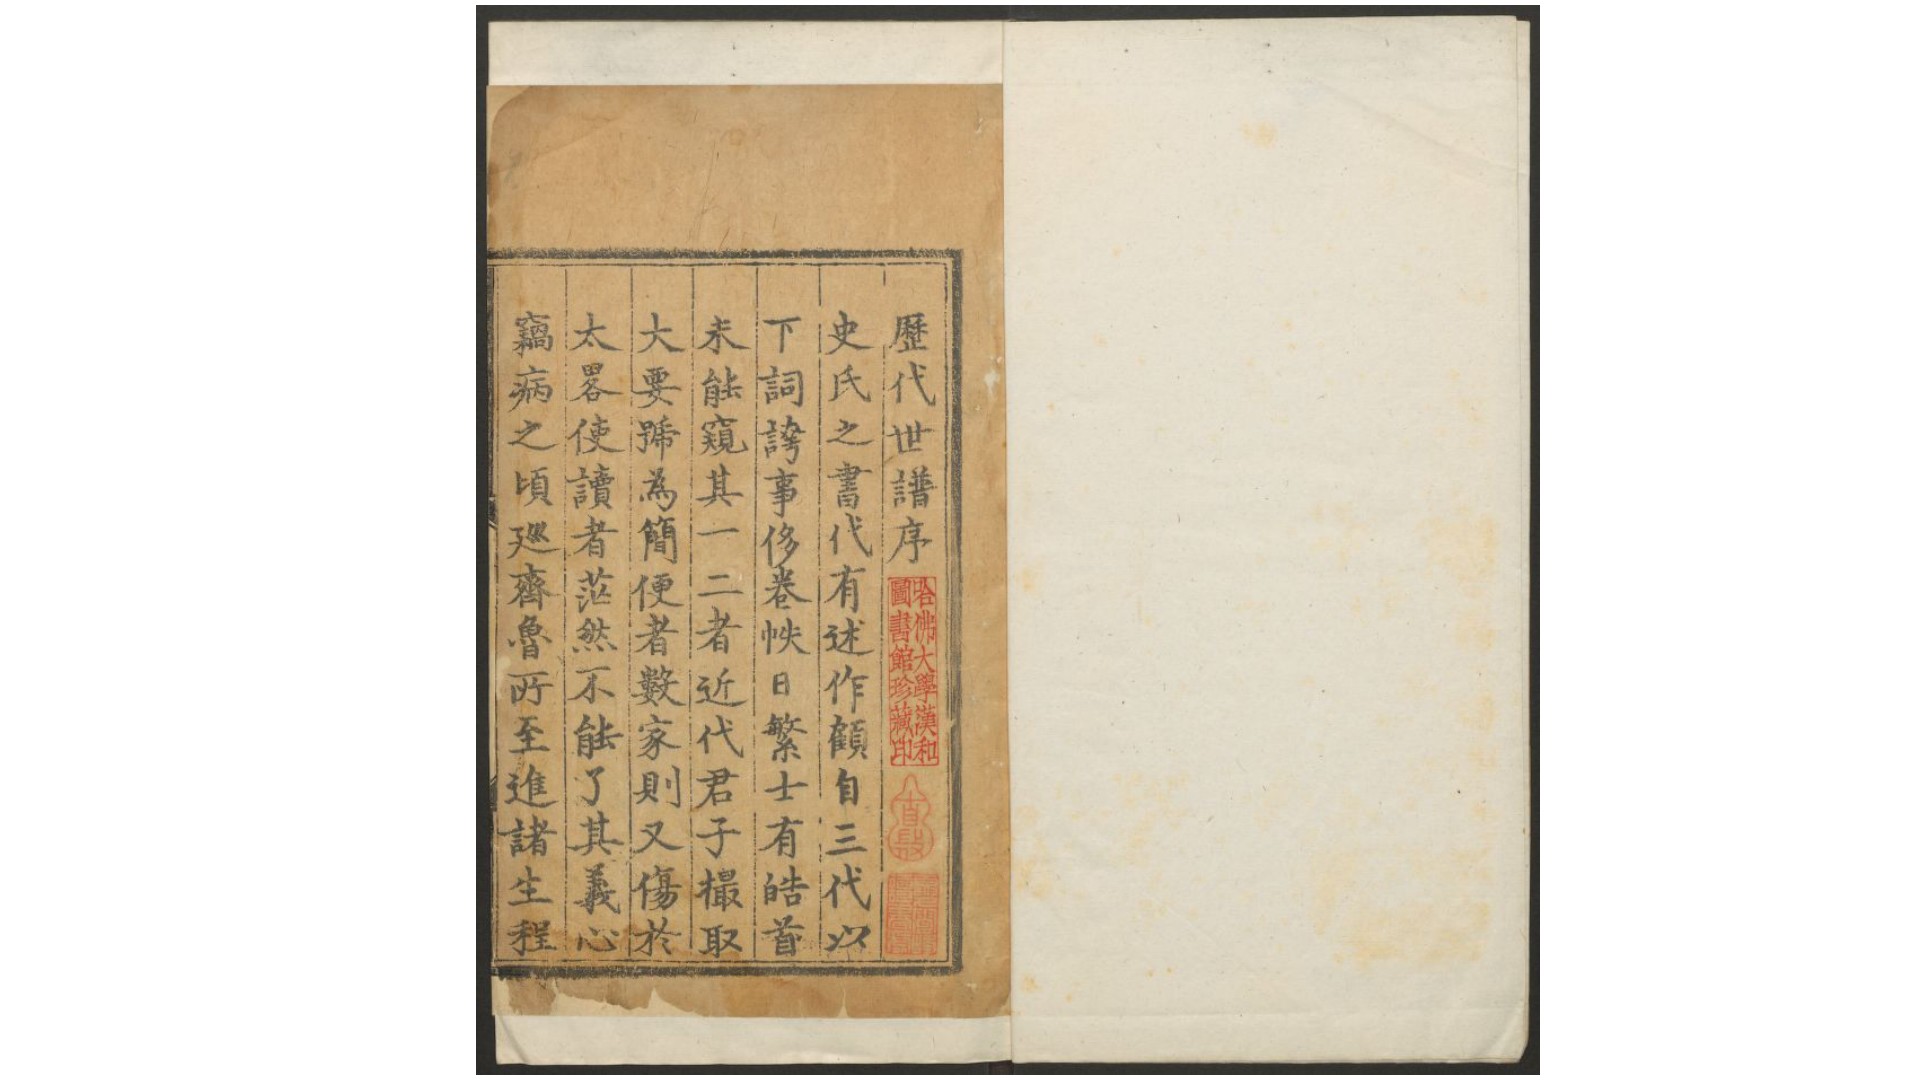 歷代世譜序
哈佛大學漢和
圖書館珍藏印
史氏之書代有述作顧自三代以
下詞誇事侈卷帙日繁士有皓首
未能窺其一二者近代君子撮取
大要號為簡便者數家則又傷於
太畧使讀者茫然不能了其義心
竊病之頃廵齊魯所至進諸生程